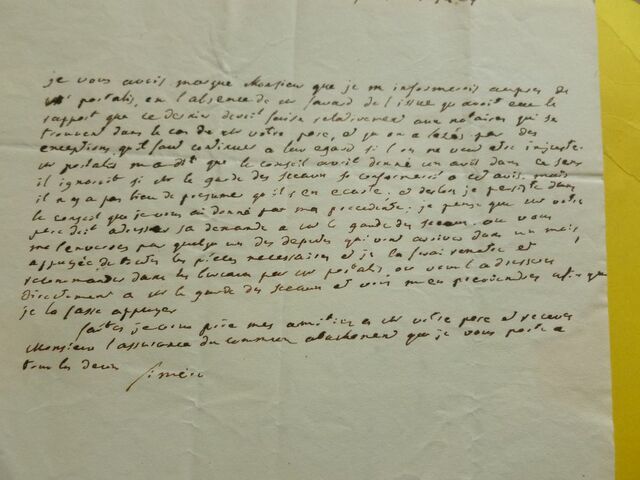 je vous avois marqué Monsieur que je m informerois aupres de
mr portalis, en l'absence de mr favard de l'issue qu avoit eue le
rapport que ce dernier devoit faire relativement aux notaires qui se
trouvent dans le cas de mr votre pere, et qu on a lésés par des
exceptions qu'il faut continuer a leur egard si l on ne veut etre injuste.
mr portalis m a dit que le conseil avoit donné un avis dans ce sens
il ignoroit si mr le garde des sceaux se conformeroit a cet avis, mais
il n y a pas lieu de presumer qu il s'en ecarte. et des lors je persiste dans
le conseil que je vous ai donné par ma precedente. je pense que mr votre
pere doit adresser sa demande a mr le garde des sceaux. ou vous
me l'enverrés par quelqu un des deputés qui vont arriver dans un mois,
appuyée de toutes les pieces necessaires et je la ferai remettre et
recommander dans les bureaux par mr portalis, ou vous l adresserés
directement a mr le garde des sceaux et vous m en previendrés afin que
je la fasse appuyer
faites je vous prie mes amitiés a mr votre pere et recevés
Monsieur l'assurance du commun attachement que je vous porte a
tous les deux
Siméon